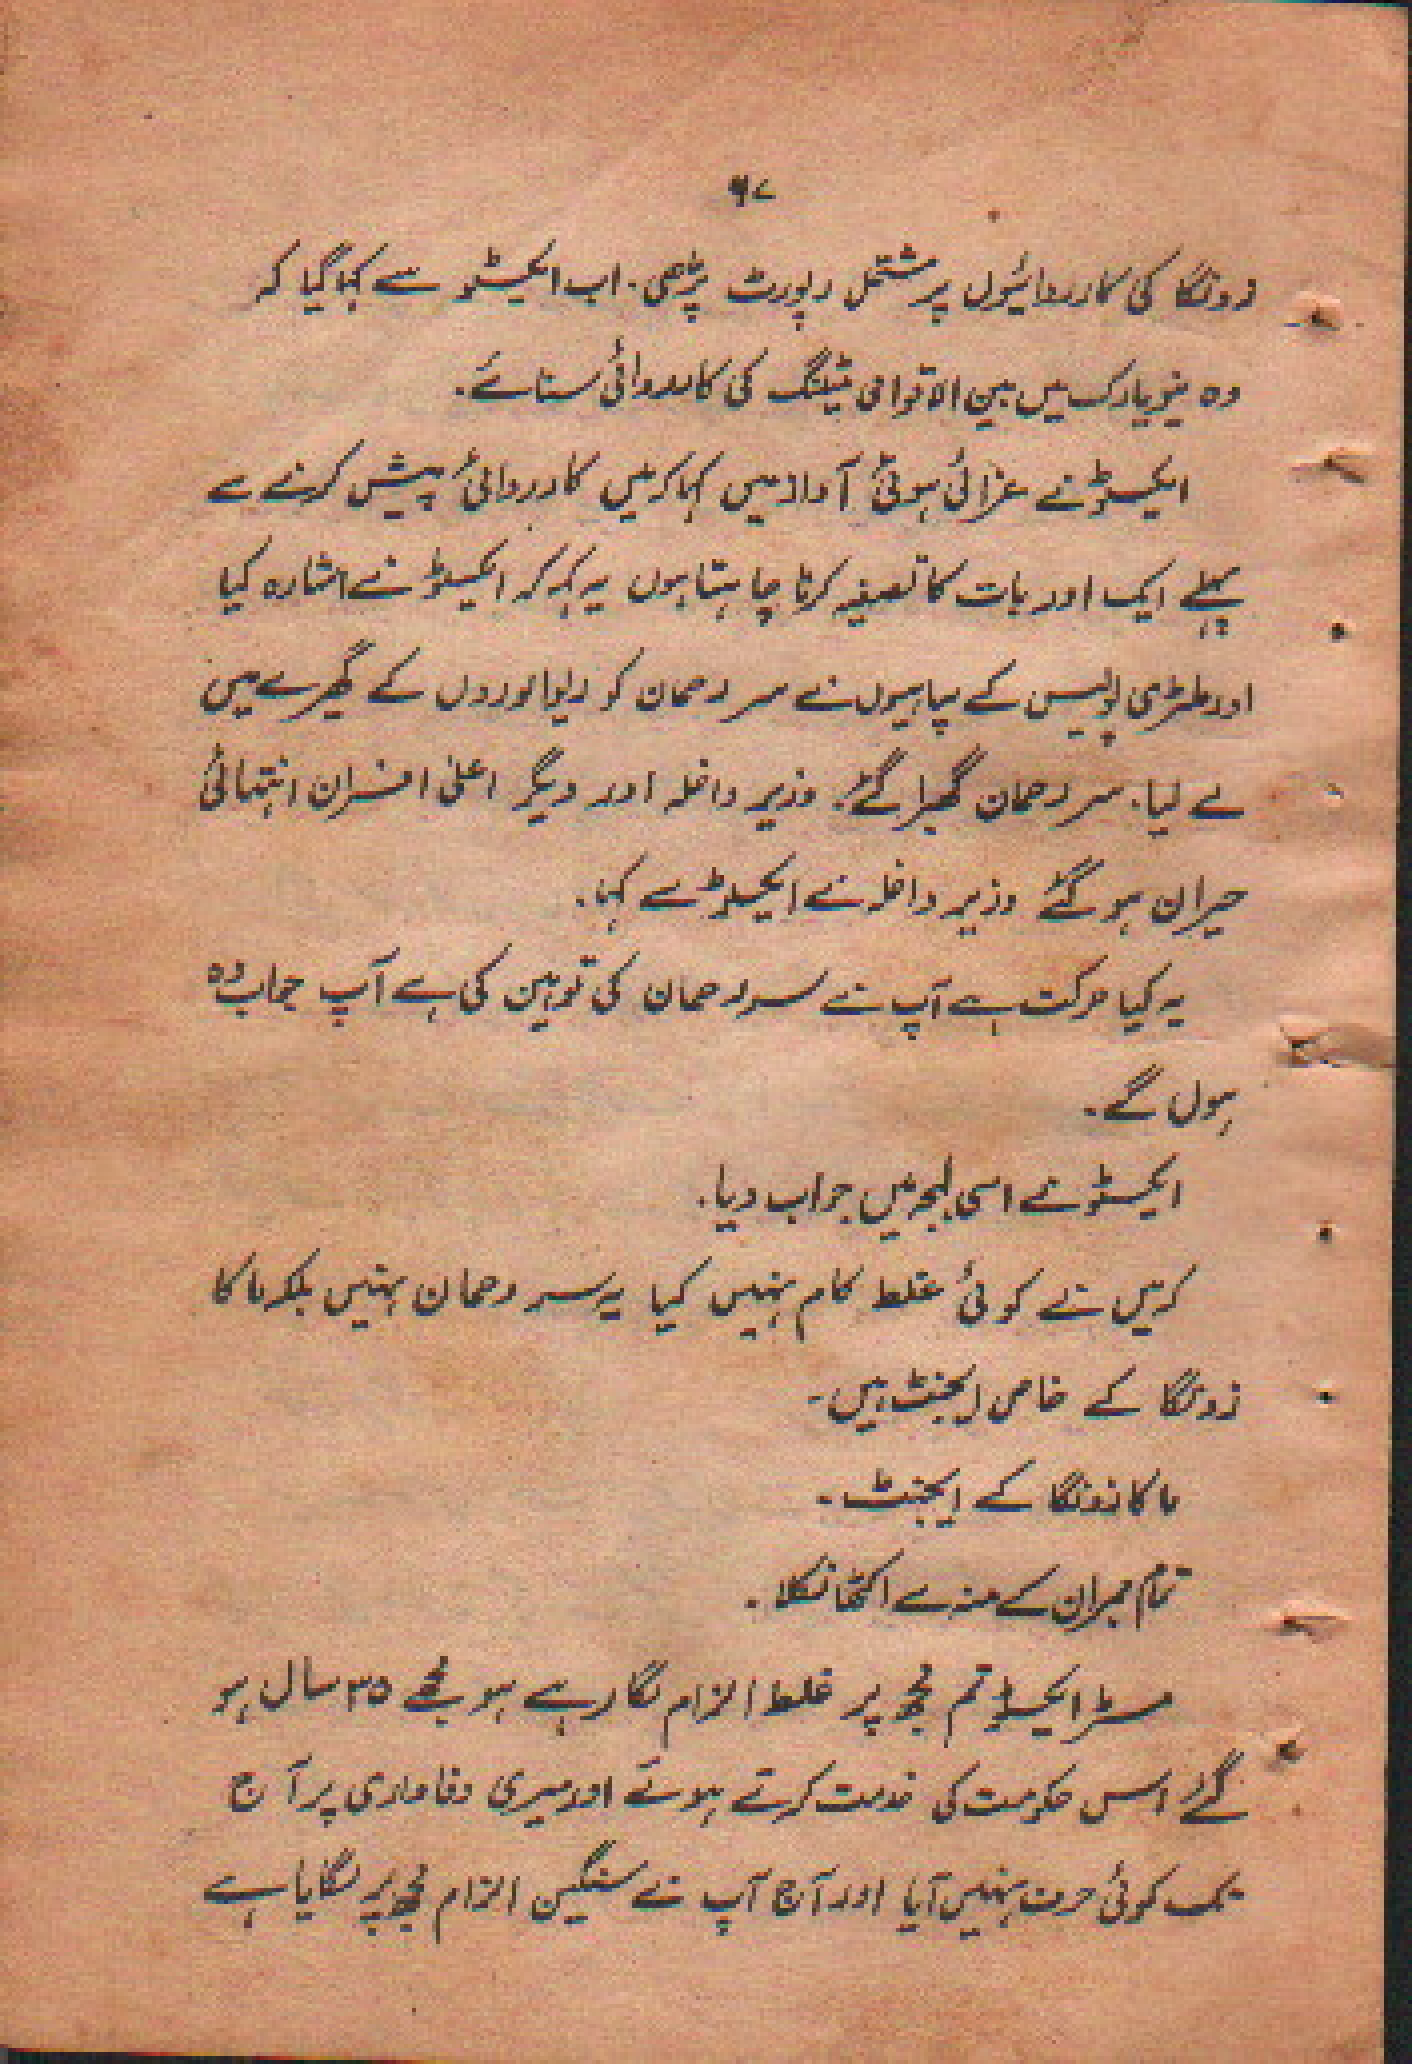 ۶۷
زونگا کی کارروائیوں پر مشتمل رپورٹ پڑھی۔ اب ایکسٹو سے کہا گیا کہ
وہ نیویارک میں بین الاقوامی میٹنگ کی کارروائی سنائے۔
ایکسٹو نے غرائی ہوئی آواز میں کہا کہ میں کارروائی پیش کرنے سے
پہلے ایک اور بات کا تصفیہ کرنا چاہتا ہوں یہ کہہ کر ایکسٹو نے اشارہ کیا
اور ملٹری پولیس کے سپاہیوں نے سر رحمان کو ریوالوروں کے گھیرے میں
لے لیا۔ سر رحمان گھبرا گئے۔ وزیر داخلہ اور دیگر اعلیٰ افسران انتہائی
حیران ہو گئے وزیر داخلہ نے ایکسٹو سے کہا۔
یہ کیا حرکت ہے آپ نے سر رحمان کی توہین کی ہے آپ جواب دہ
ہوں گے۔
ایکسٹو نے اسی لہجہ میں جواب دیا۔
کہ میں نے کوئی غلط کام نہیں کیا یہ سر رحمان نہیں بلکہ ماکا
زونگا کے خاص ایجنٹ ہیں۔
ماکا زونگا کے ایجنٹ۔
تمام ممبران کے منہ سے اکٹھا نکلا۔
مسٹر ایکسٹو تم مجھ پر غلط الزام لگا رہے ہو مجھے ۳۵ سال ہو
گئے اس حکومت کی خدمت کرتے ہوئے اور میری وفاداری پر آج
تک کوئی حرف نہیں آیا اور آج آپ نے سنگین الزام مجھ پر لگایا ہے